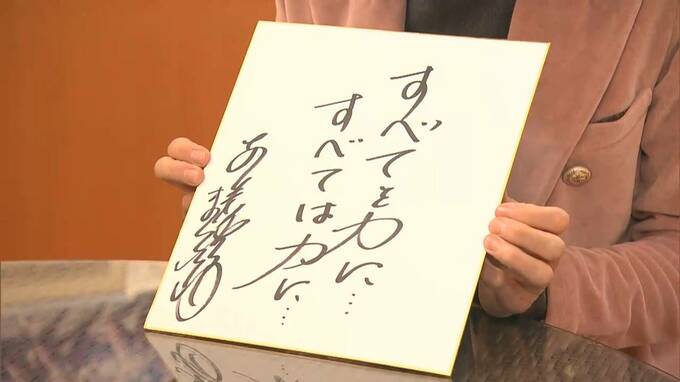 すべてを力に…
すべては力に…